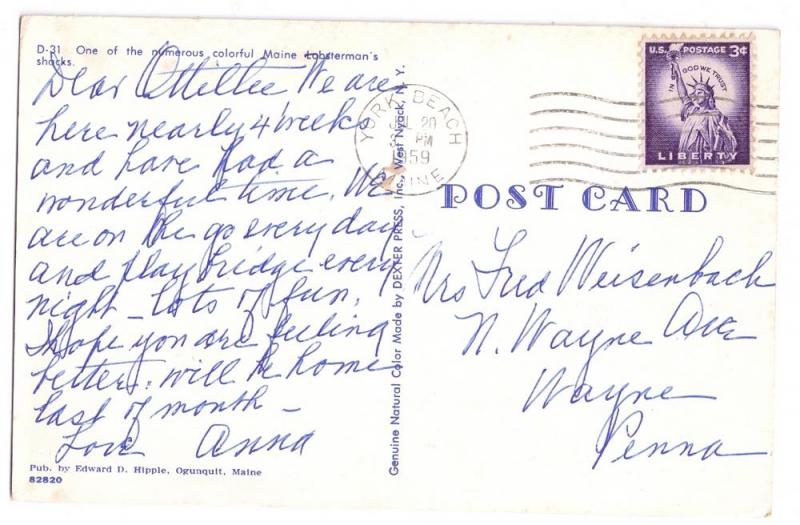 D-31 One of the numerous colorful Maine Lobsterman's
shacks.
Dear Ottillie We are
here nearly 4 weeks
and have had a
wonderful time. We
are on the go every day
and play bridge every
night - lots of fun.
I hope you are feeling
better. will be home
last of month -
Love Anna
Pub. by Edward D. Hipple, Ogunquit, Maine
82820
Genuine Natural Color Made by DEXTER PRESS, Inc., West Nyack, N. Y.
YORK BEACH
JUL 20
PM
1959
MAINE
U.S. POSTAGE 3¢
IN GOD WE TRUST
LIBERTY
POST CARD
Mrs Fred Weisenbach
N. Wayne Ave
Wayne
Penna